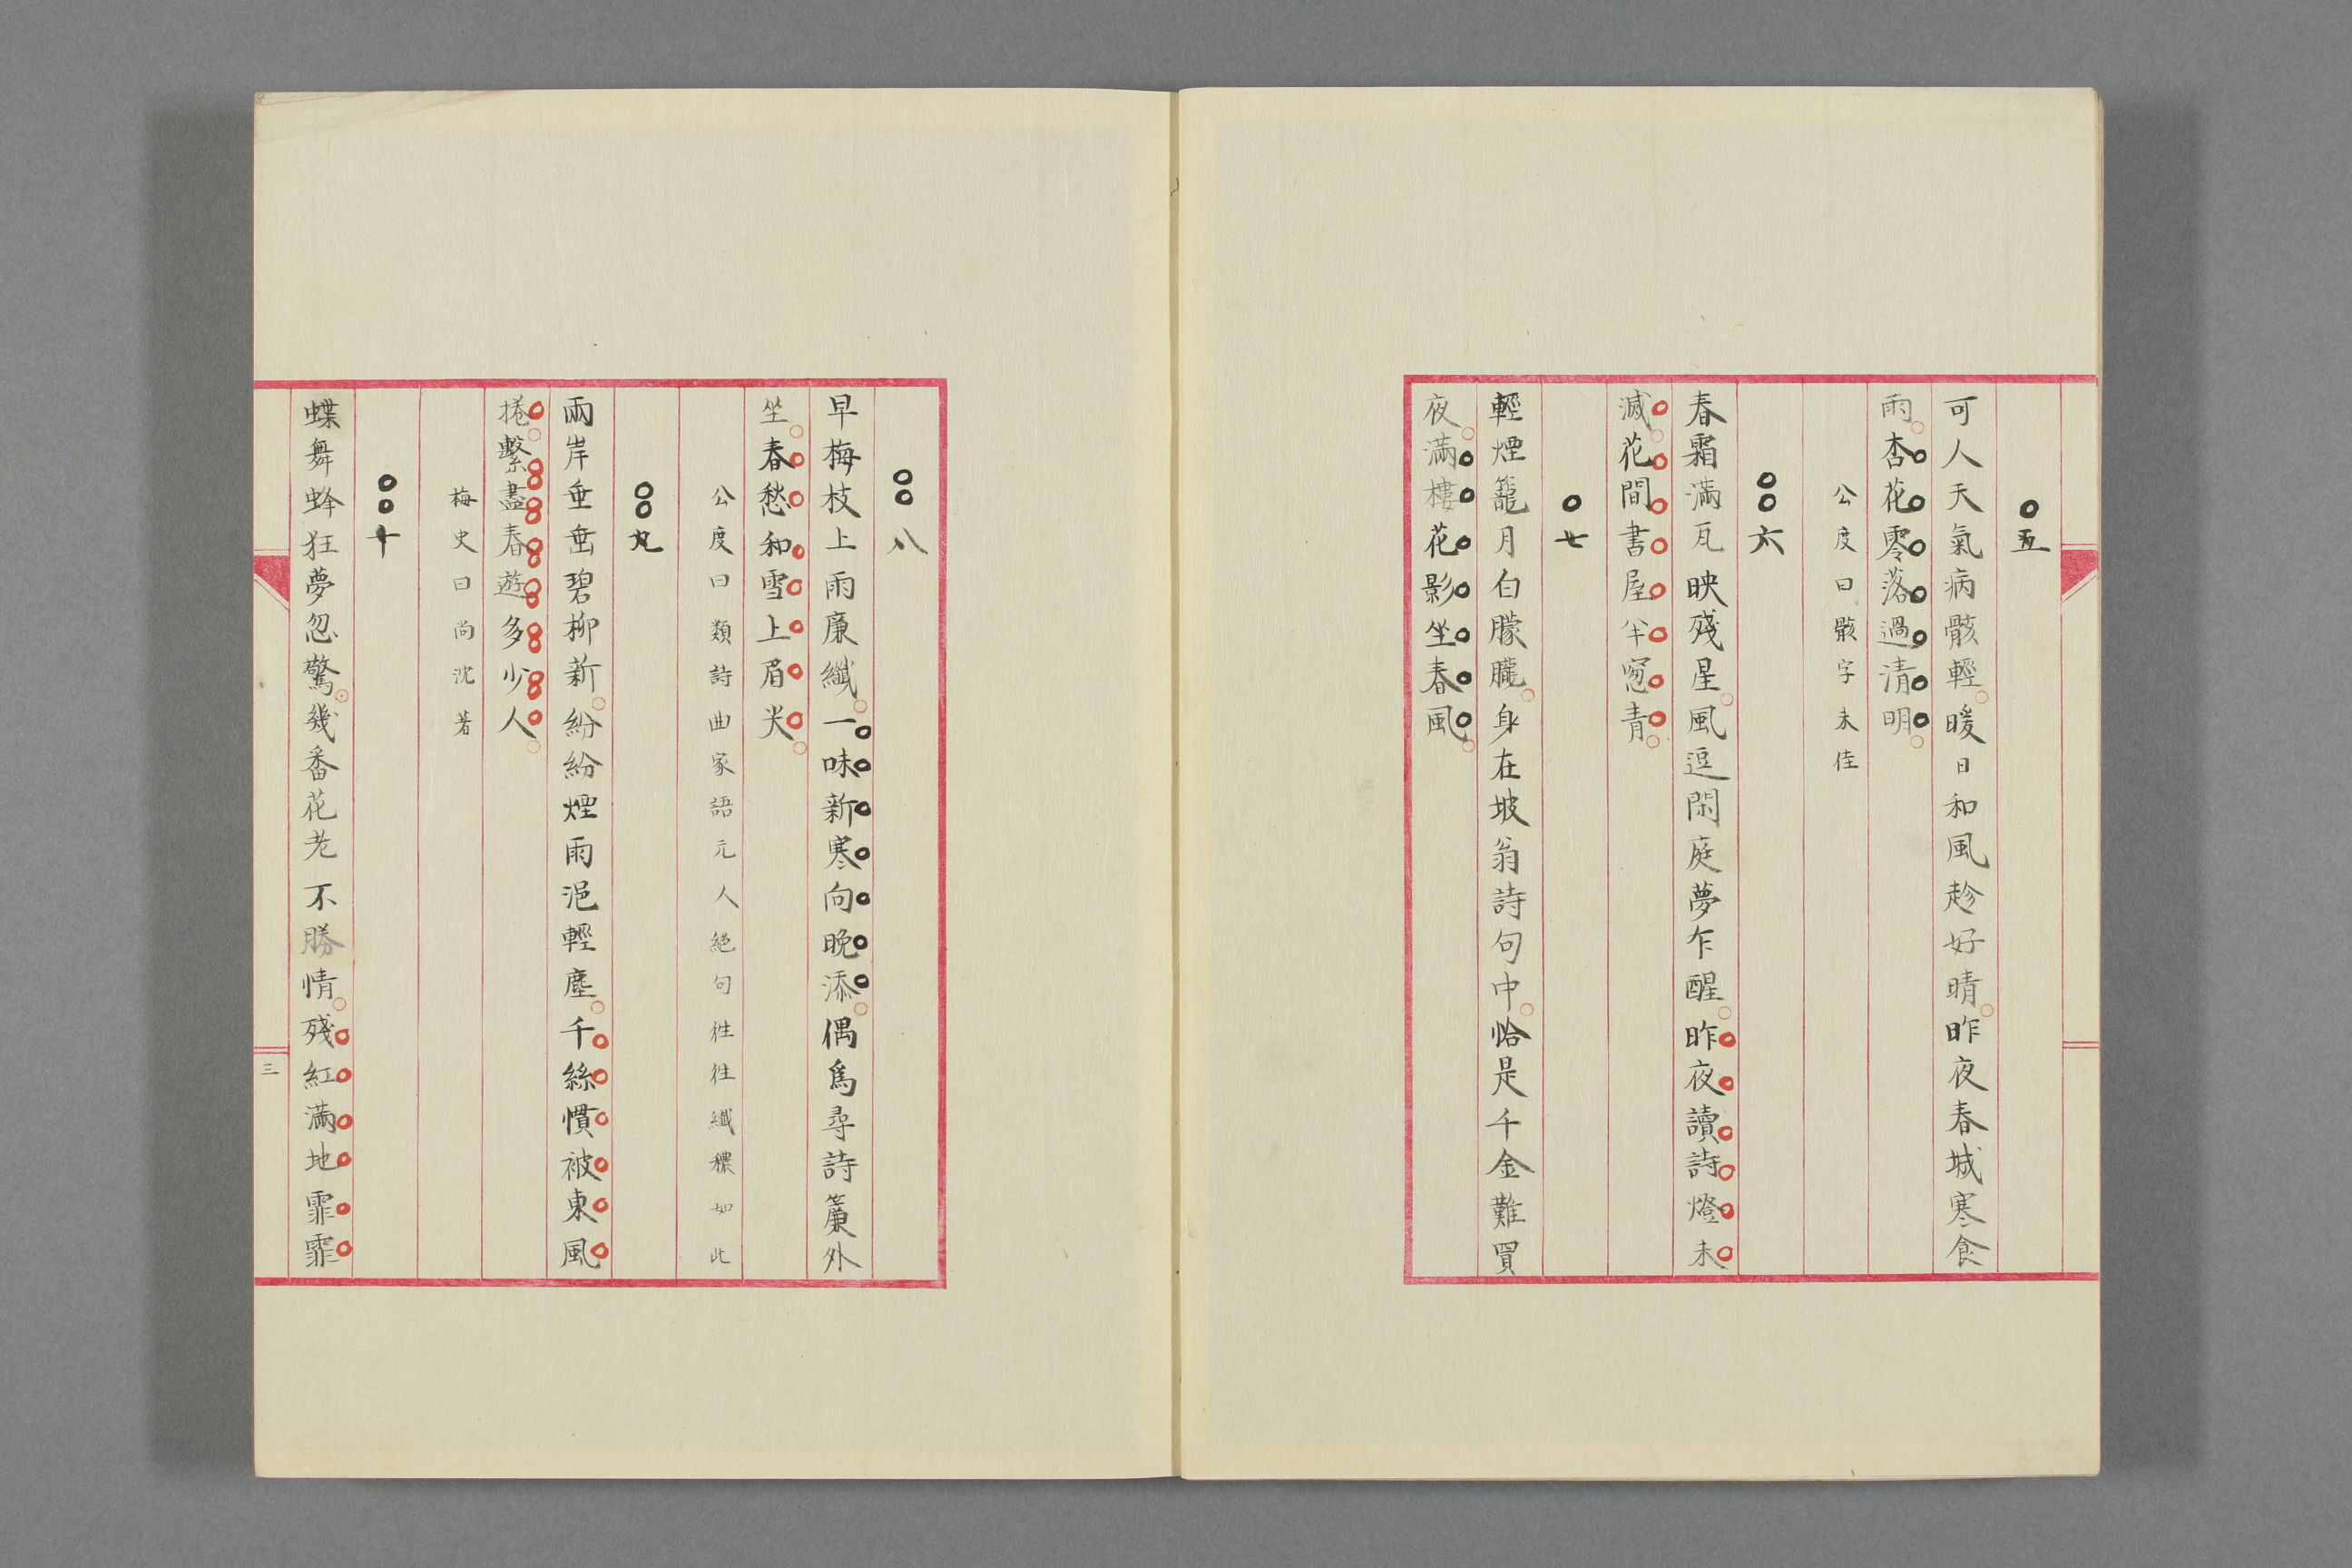 五
可人天氣病骸輕暖日和風趁好晴昨夜春城寒食
雨杏花零落過清明
公度曰骸字未佳
六
春霜滿瓦映殘星風逗閑庭夢乍醒昨夜讀詩燈未
滅花間書屋半窻青
七
輕煙籠月白朦朧身在坡翁詩句中恰是千金難買
夜滿樓花影坐春風
八
早梅枝上雨廉纖一味新寒向晚添偶爲尋詩簾外
坐春愁和雪上眉尖
公度曰類詩曲家語元人絕句往往纖穠如此
九
兩岸垂垂碧柳新紛紛煙雨浥輕塵千絲慣被東風
捲繫盡春遊多少人
梅史曰尚沈著
十
蝶舞蜂狂夢忽驚幾番花老不勝情殘紅滿地霏霏
三